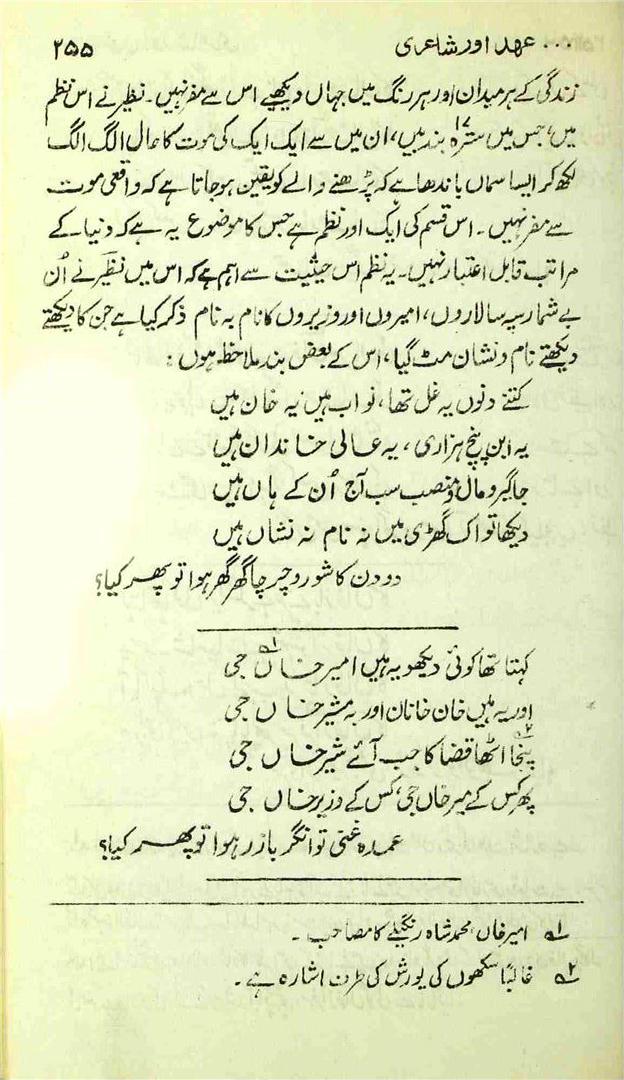 ... عہد اور شاعری ۲۵۵
زندگی کے ہر میدان اور ہر رنگ میں جہاں دیکھیے اس سے مفر نہیں۔ نظیر نے اس نظم
میں، جس میں سترہ ۱۷ بند ہیں، ان میں سے ایک ایک کی موت کا حال الگ الگ
لکھ کر ایسا سماں باندھا ہے کہ پڑھنے والے کو یقین ہو جاتا ہے کہ واقعی موت
سے مفر نہیں۔ اس قسم کی ایک اور نظم ہے جس کا موضوع یہ ہے کہ دنیا کے
مراتب قابل اعتبار نہیں۔ یہ نظم اس حیثیت سے اہم ہے کہ اس میں نظیر نے اُن
بے شمار سپہ سالاروں، امیروں اور وزیروں کا نام بہ نام ذکر کیا ہے جن کا دیکھتے
دیکھتے نام و نشان مٹ گیا، اس کے بعض بند ملاحظہ ہوں:
کتنے دنوں یہ غل تھا، نواب ہیں یہ خان ہیں
یہ ابن پنج ہزاری، یہ عالی خاندان ہیں
جاگیر و مال و منصب سب آج اُن کے ہاں ہیں
دیکھا تو اک گھڑی میں نہ نام نہ نشاں ہیں
دو دن کا شور و چرچا گھر گھر ہوا تو پھر کیا؟
کہتا تھا کوئی دیکھو یہ ہیں امیر خاں ۱؎ جی
اور یہ ہیں خان خاناں اور یہ مشیر خاں جی
پنجا ۲؎ اٹھا قضا کا جب آئے شیر خاں جی
پھر کس کے میر خاں جی، کس کے وزیر خاں جی
عمدہ غنی توانگر با زر ہوا تو پھر کیا؟
۱؎ امیر خاں محمد شاہ رنگیلے کا مصاحب۔
۲؎ غالباً سکھوں کی یورش کی طرف اشارہ ہے۔